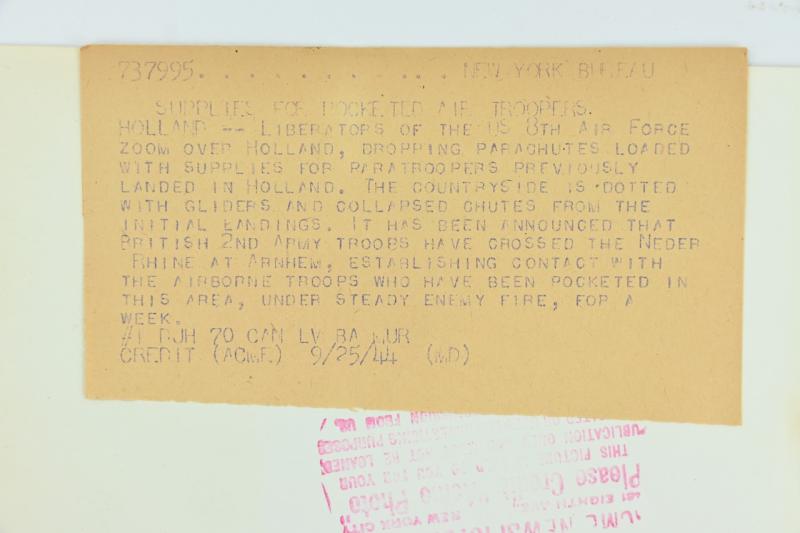 737995. . . . . . . . . . . . NEW YORK BUREAU
SUPPLIES FOR POCKETED AIR TROOPERS.
HOLLAND -- LIBERATORS OF THE US 8TH AIR FORCE
ZOOM OVER HOLLAND, DROPPING PARACHUTES LOADED
WITH SUPPLIES FOR PARATROOPERS PREVIOUSLY
LANDED IN HOLLAND. THE COUNTRYSIDE IS DOTTED
WITH GLIDERS AND COLLAPSED CHUTES FROM THE
INITIAL LANDINGS. IT HAS BEEN ANNOUNCED THAT
BRITISH 2ND ARMY TROOPS HAVE CROSSED THE NEDER
RHINE AT ARNHEM, ESTABLISHING CONTACT WITH
THE AIRBORNE TROOPS WHO HAVE BEEN POCKETED IN
THIS AREA, UNDER STEADY ENEMY FIRE, FOR A
WEEK.
#1 DJH 70 CAN LV BA MUR
CREDIT (ACME) 9/25/44 (MD)
EIGHTH AVE., NEW YORK CITY
Please Photo
THIS PICTURE TO YOU FOR YOUR
PUBLICATION ONLY NOT BE LOANED,
PURPOSES
FROM US.